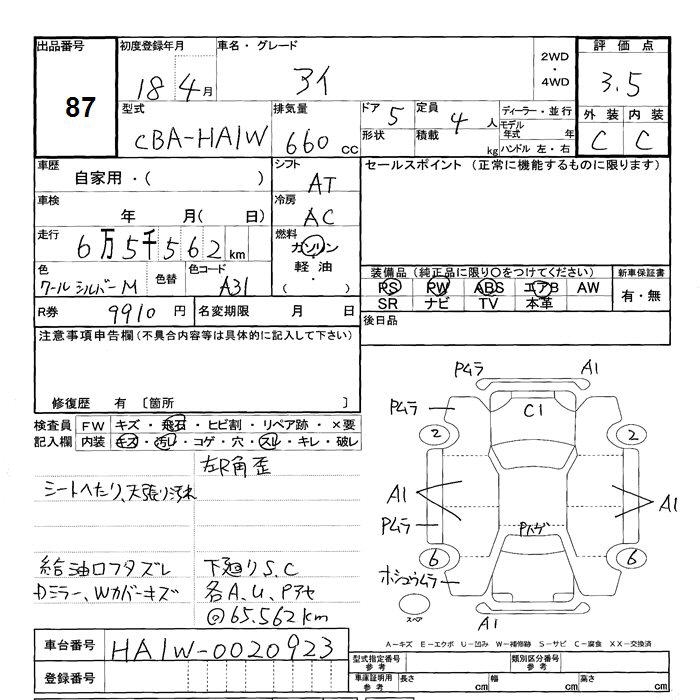 出品番号 初度登録年月 車名・グレード 2WD・4WD 評価点
87 18 4月 アイ 3.5
型式 排気量 ドア 5 定員 4人 ディーラー・並行 外装 内装
CBA-HA1W 660cc 形状 積載 kg モデル年式 年 C C
ハンドル 左・右
車歴 シフト セールスポイント (正常に機能するものに限ります)
自家用・( ) AT
車検 冷房
年 月(日) AC
走行 燃料
6万5千562km ガソリン
軽油・
( )
色 色替 色コード 装備品 (純正品に限り○をつけてください) 新車保証書
クールシルバーM A31 PS PW ABS エアB AW 有・無
SR ナビ TV 本革
R券 9910円 名変期限 月 日 後日品
注意事項申告欄(不具合内容等は具体的に記入して下さい)
修復歴 有 〔箇所 〕
検査員 FW キズ・飛石・ヒビ割・リペア跡・×要
記入欄 内装 キズ・汚レ・コゲ・穴・スレ・キレ・破レ
左R角歪
シートへたり、天張り汚れ
給油口フタズレ 下廻りS.C
Dミラー、Wカバーキズ 各A、U、Pアセ
@65.562km
車台番号 HA1W-0020923
登録番号
Pムラ A1
Pムラ C1
2 2
A1 A1
Pムラ Pトゲ
6 6
ホシュウムラ
スペア A1
A-キズ E-エクボ U-凹み W-補修跡 S-サビ C-腐食 XX-交換済
型式指定番号 参考 類別区分番号 参考
車庫証明用 参考 長さ cm 幅 cm 高さ cm